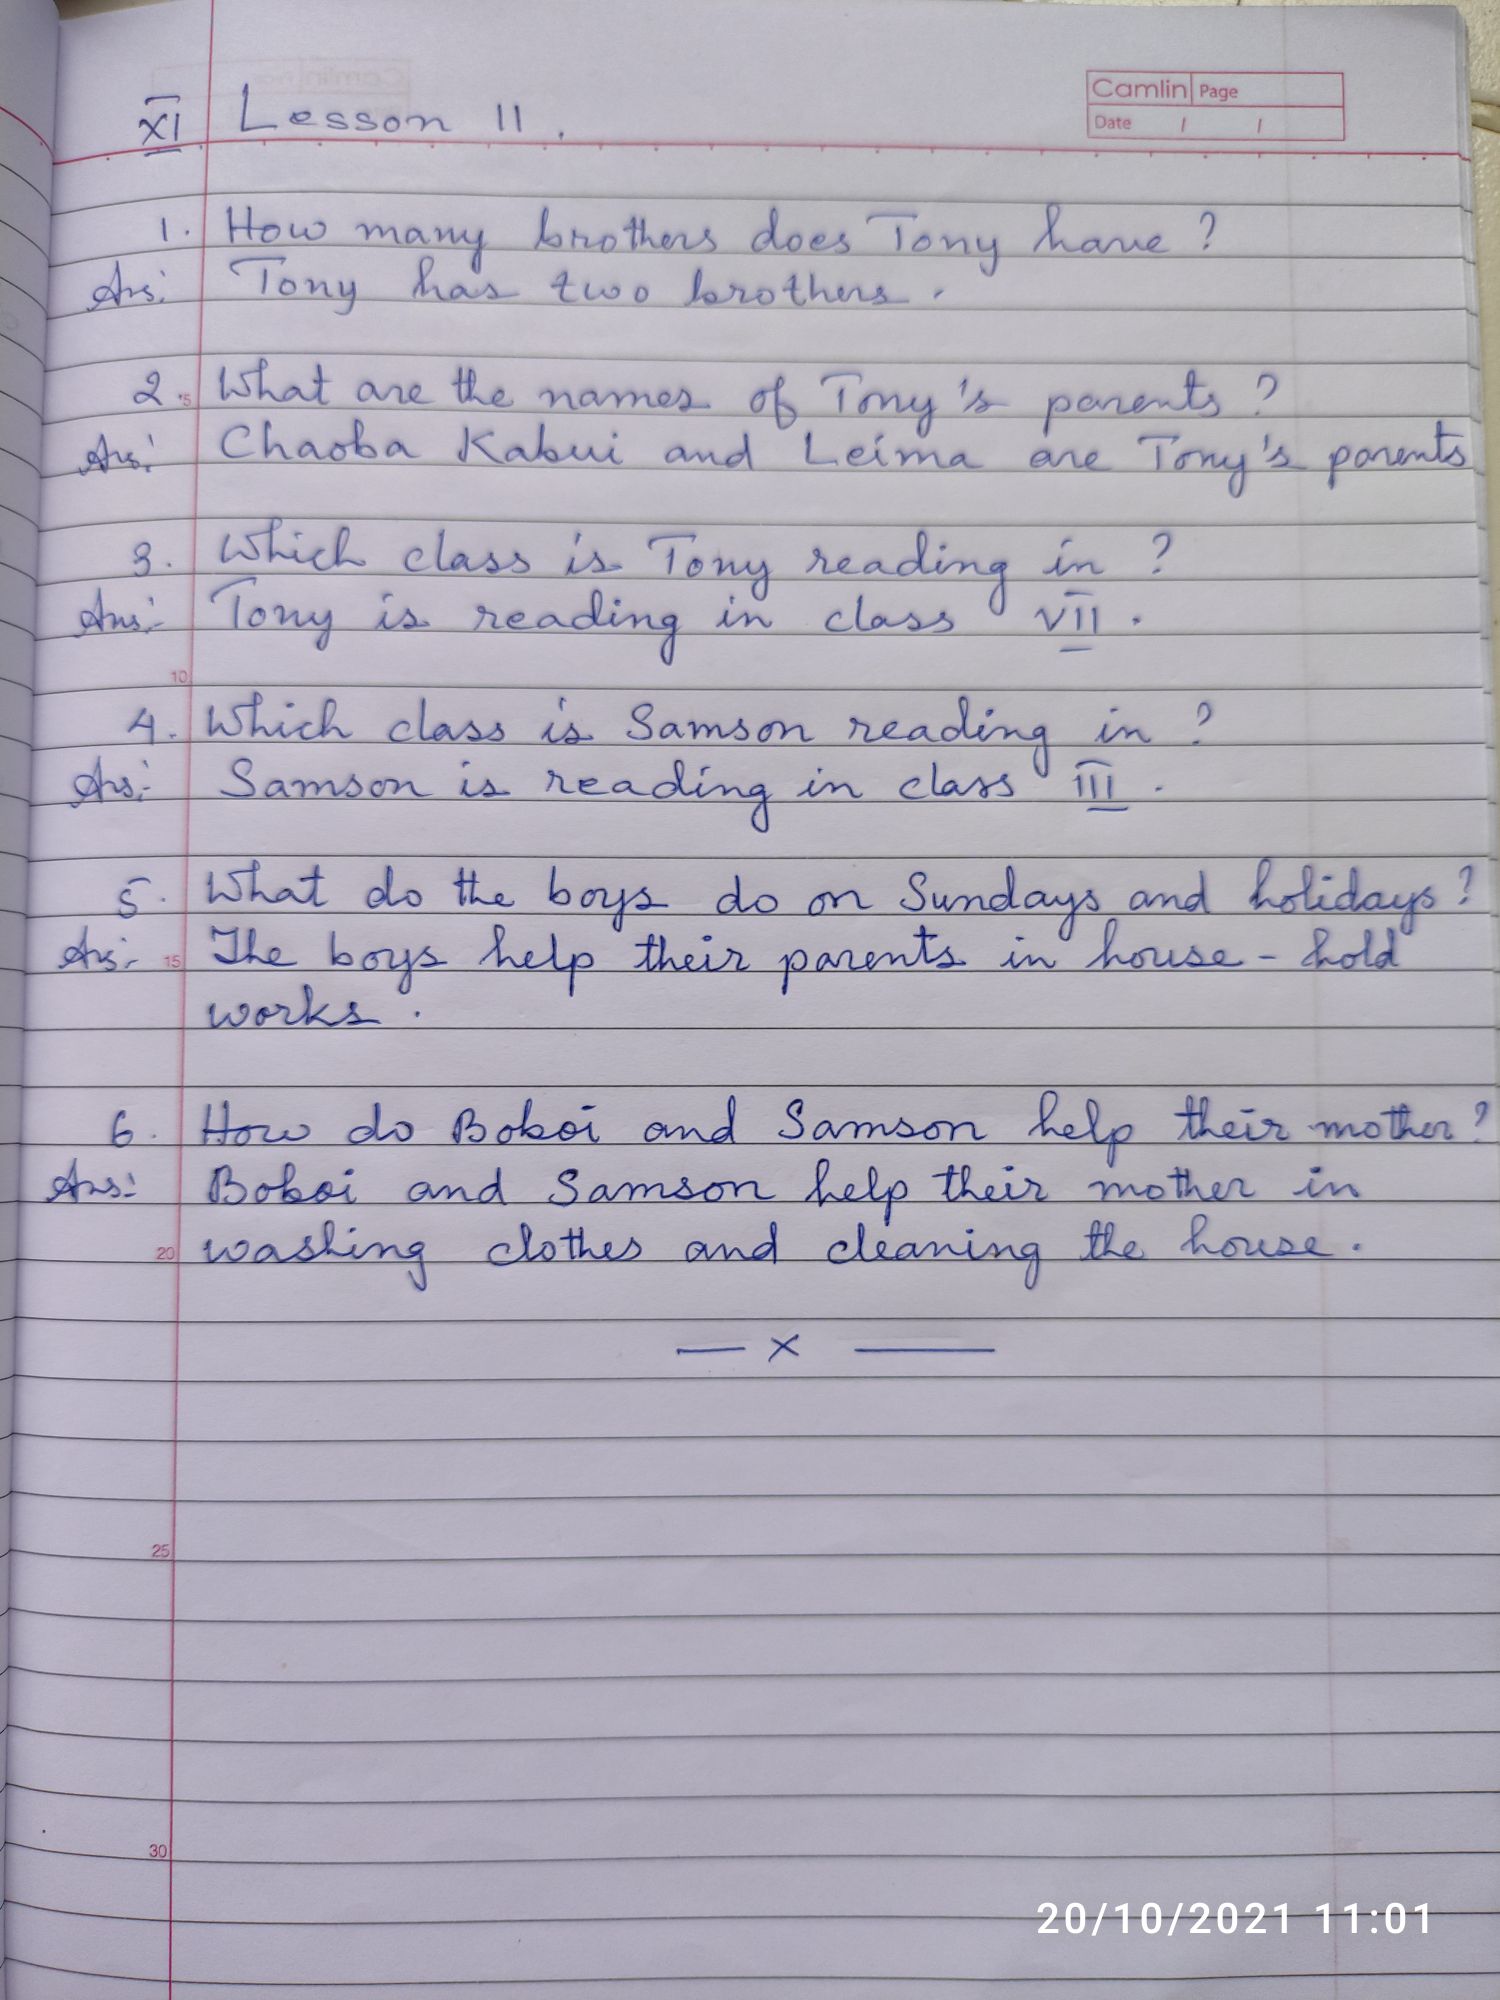 XI Lesson 11.
Camlin Page
Date / /
1. How many brothers does Tony have?
Ans: Tony has two brothers.
2. What are the names of Tony's parents?
Ans: Chaoba Kabui and Leima are Tony's parents
3. Which class is Tony reading in?
Ans:- Tony is reading in class VII.
10
4. Which class is Samson reading in?
Ans:- Samson is reading in class III.
5. What do the boys do on Sundays and holidays?
Ans:- 15 The boys help their parents in house-hold
works.
6. How do Boboi and Samson help their mother?
Ans:- Boboi and Samson help their mother in
20 washing clothes and cleaning the house.
— x —
25
30
20/10/2021 11:01